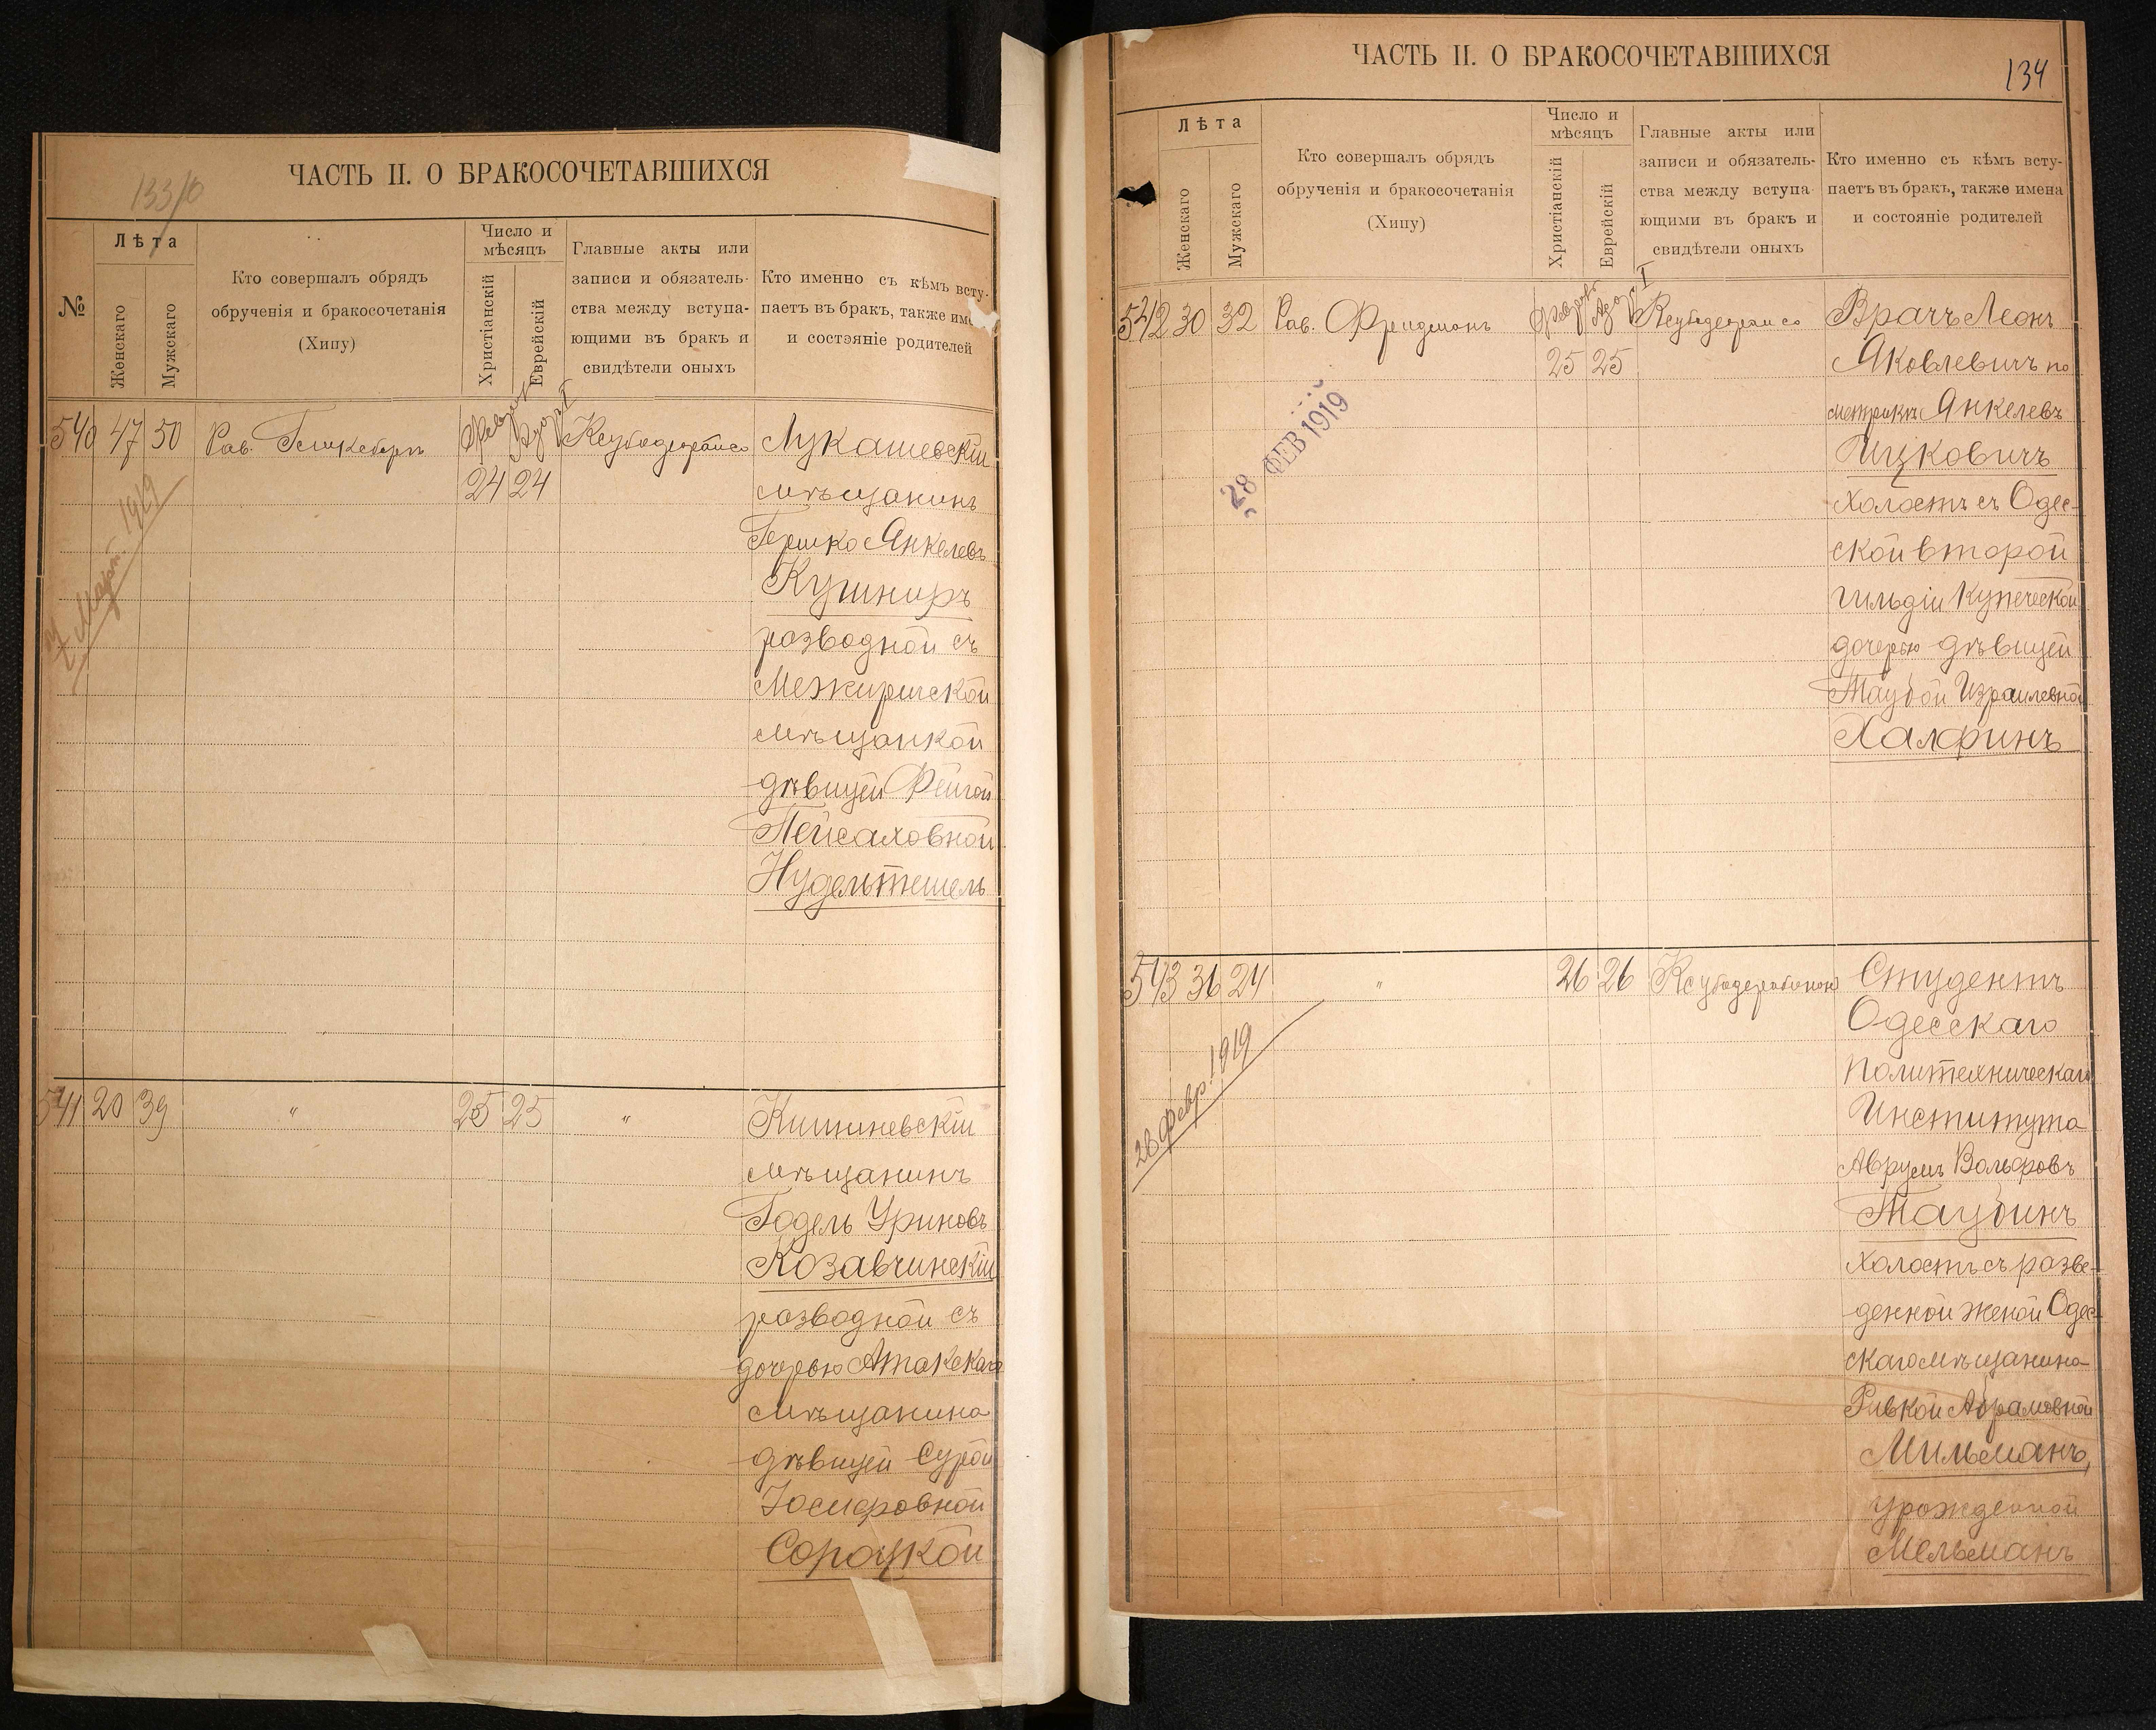 ЧАСТЬ II. О БРАКОСОЧЕТАВШИХСЯ
133/б
№
Лѣта
Женскаго
Мужскаго
Кто совершалъ обрядъ
обрученія и бракосочетанія
(Хипу)
Число и
мѣсяцъ
Христіанскій
Еврейскій
Главные акты или
записи и обязатель-
ства между вступа-
ющими въ бракъ и
свидѣтели оныхъ
Кто именно съ кѣмъ всту-
паетъ въ бракъ, также име
и состояніе родителей
540 47 50 Рав.
24 24
Март. 1919
Лукашевскій
мѣщанинъ
Гершко Янкелевъ
Кушниръ
розводной съ
Межиричской
мѣщанкой
дѣвицей Фейгой
Пейсаховной
Нудельтешель
541 20 39 " 25 25 "
Кишиневскій
мѣщанинъ
Годель Уриновъ
Козавчинскій
розводной съ
дочерью Атакскаго
мѣщанина
дѣвицей Сурой
Іосифовной
Сороцкой
ЧАСТЬ II. О БРАКОСОЧЕТАВШИХСЯ
134
Лѣта
Женскаго
Мужскаго
Кто совершалъ обрядъ
обрученія и бракосочетанія
(Хипу)
Число и
мѣсяцъ
Христіанскій
Еврейскій
Главные акты или
записи и обязатель-
ства между вступа-
ющими въ бракъ и
свидѣтели оныхъ
Кто именно съ кѣмъ всту-
паетъ въ бракъ, также имена
и состояніе родителей
542 30 32 Рав. Фридманъ
25 25
28 ФЕВ 1919
Врачъ Леонъ
Яковлевичъ по
метрикѣ Янкелевъ
Ицковичъ
холостъ съ Одес-
ской второй
гильдіи Купеческой
дочерью дѣвицей
Таубой Израилевной
Халфинъ
543 36 24 " 26 26
28 февр. 1919
Студентъ
Одесскаго
Политехническаго
Института
Аврумъ Вольфовъ
Таубинъ
холостъ съ разве-
денной женой Одес-
скаго мѣщанина
Ривкой Абрамовной
Мильманъ,
урожденной
Мельманъ